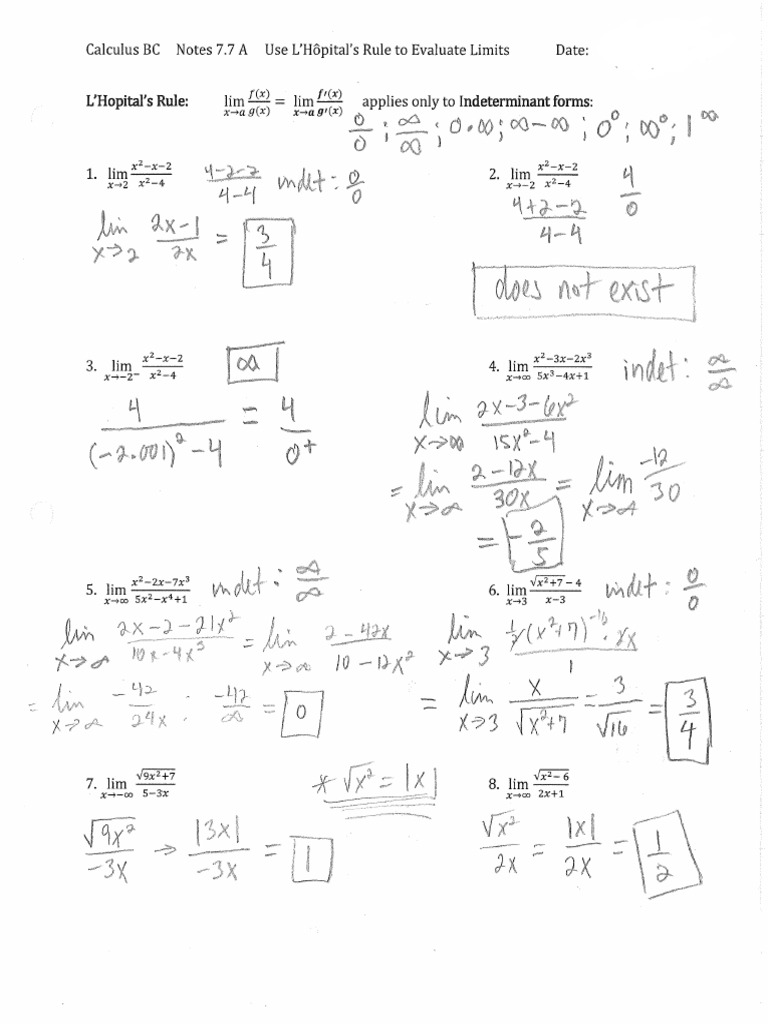 Calculus BC Notes 7.7 A Use L'Hôpital's Rule to Evaluate Limits Date:
L'Hopital's Rule: lim x→a f(x)/g(x) = lim x→a f′(x)/g′(x) applies only to Indeterminant forms:
0/0 ; ∞/∞ ; 0·∞ ; ∞−∞ ; 0^0 ; ∞^0 ; 1^∞
1. lim x→2 (x²−x−2)/(x²−4) (4−2−2)/(4−4) indet: 0/0
lim x→2 (2x−1)/(2x) = 3/4
2. lim x→−2 (x²−x−2)/(x²−4) 4/0
(4+2−2)/(4−4)
does not exist
3. lim x→−2⁻ (x²−x−2)/(x²−4) ∞
4/((−2.001)²−4) = 4/0⁺
4. lim x→∞ (x²−3x−2x³)/(5x³−4x+1) indet: ∞/∞
lim x→∞ (2x−3−6x²)/(15x²−4)
= lim x→∞ (2−12x)/(30x) = lim x→∞ −12/30
= −2/5
5. lim x→∞ (x²−2x−7x³)/(5x²−x⁴+1) indet: ∞/∞
lim x→∞ (2x−2−21x²)/(10x−4x³) = lim x→∞ (2−42x)/(10−12x²)
= lim x→∞ −42/(24x) : −42/∞ = 0
6. lim x→3 (√(x²+7)−4)/(x−3) indet: 0/0
lim x→3 (½(x²+7)^(−½)·2x)/1
= lim x→3 x/√(x²+7) = 3/√16 = 3/4
7. lim x→−∞ √(9x²+7)/(5−3x) * √x² = |x|
√(9x²)/(−3x) → |3x|/(−3x) = 1
8. lim x→∞ √(x²−6)/(2x+1)
√x²/(2x) = |x|/(2x) = 1/2